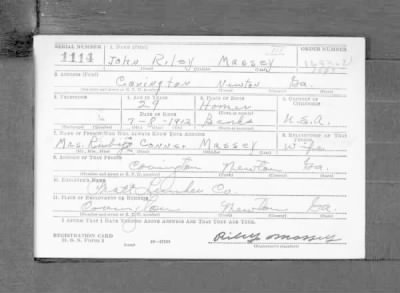 SERIAL NUMBER 1. NAME (Print) ORDER NUMBER
1114 John Riley Massey
(First) (Middle) (Last)
2. ADDRESS (Print)
Covington Newton Ga.
3. TELEPHONE 4. AGE IN YEARS 5. PLACE OF BIRTH 6. COUNTRY OF CITIZENSHIP
29 Homer
DATE OF BIRTH
7-8-1912 Banks U.S.A.
(Exchange) (Number) (Mo.) (Day) (Yr.) (State or country)
7. NAME OF PERSON WHO WILL ALWAYS KNOW YOUR ADDRESS 8. RELATIONSHIP OF THAT PERSON
Mrs. Massey Wife
(Mr., Mrs., Miss) (First) (Middle) (Last)
9. ADDRESS OF THAT PERSON
Covington Newton Ga.
10. EMPLOYER'S NAME
Co.
11. PLACE OF EMPLOYMENT OR BUSINESS
Covington Newton Ga.
I AFFIRM THAT I HAVE VERIFIED ABOVE ANSWERS AND THAT THEY ARE TRUE.
REGISTRATION CARD
D. S. S. Form 1 Riley Massey